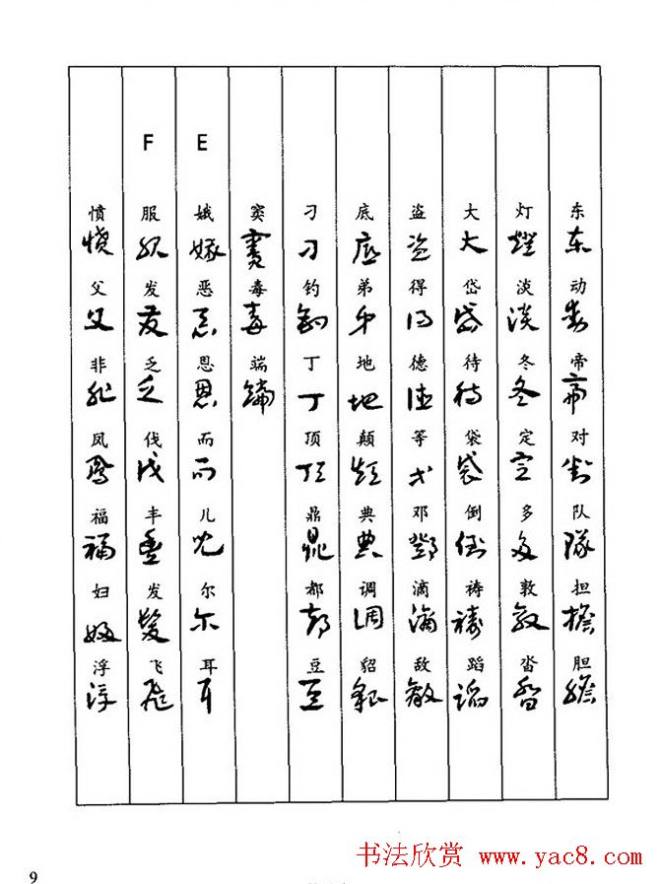 东 动 帝 对 队 担 胆
灯 淡 冬 定 多 敦 沓
大 岱 待 袋 倒 祷 蹈
盗 得 德 等 邓 滴 敌
底 弟 地 颠 典 调 貂
刁 钓 丁 顶 鼎 都 豆
窦 毒 端
E 娥 恶 恩 而 儿 尔 耳
F 服 发 乏 伐 丰 发 飞
愤 父 非 凤 福 妇 浮
9
书法欣赏 www.yac8.com